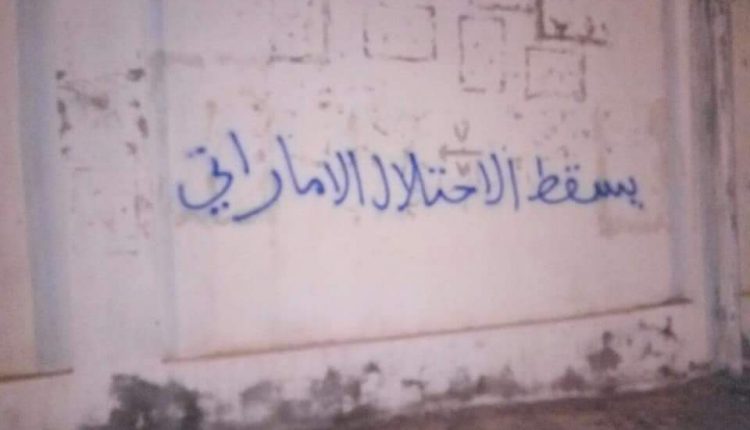 يسقط الاحتلال الاماراتي